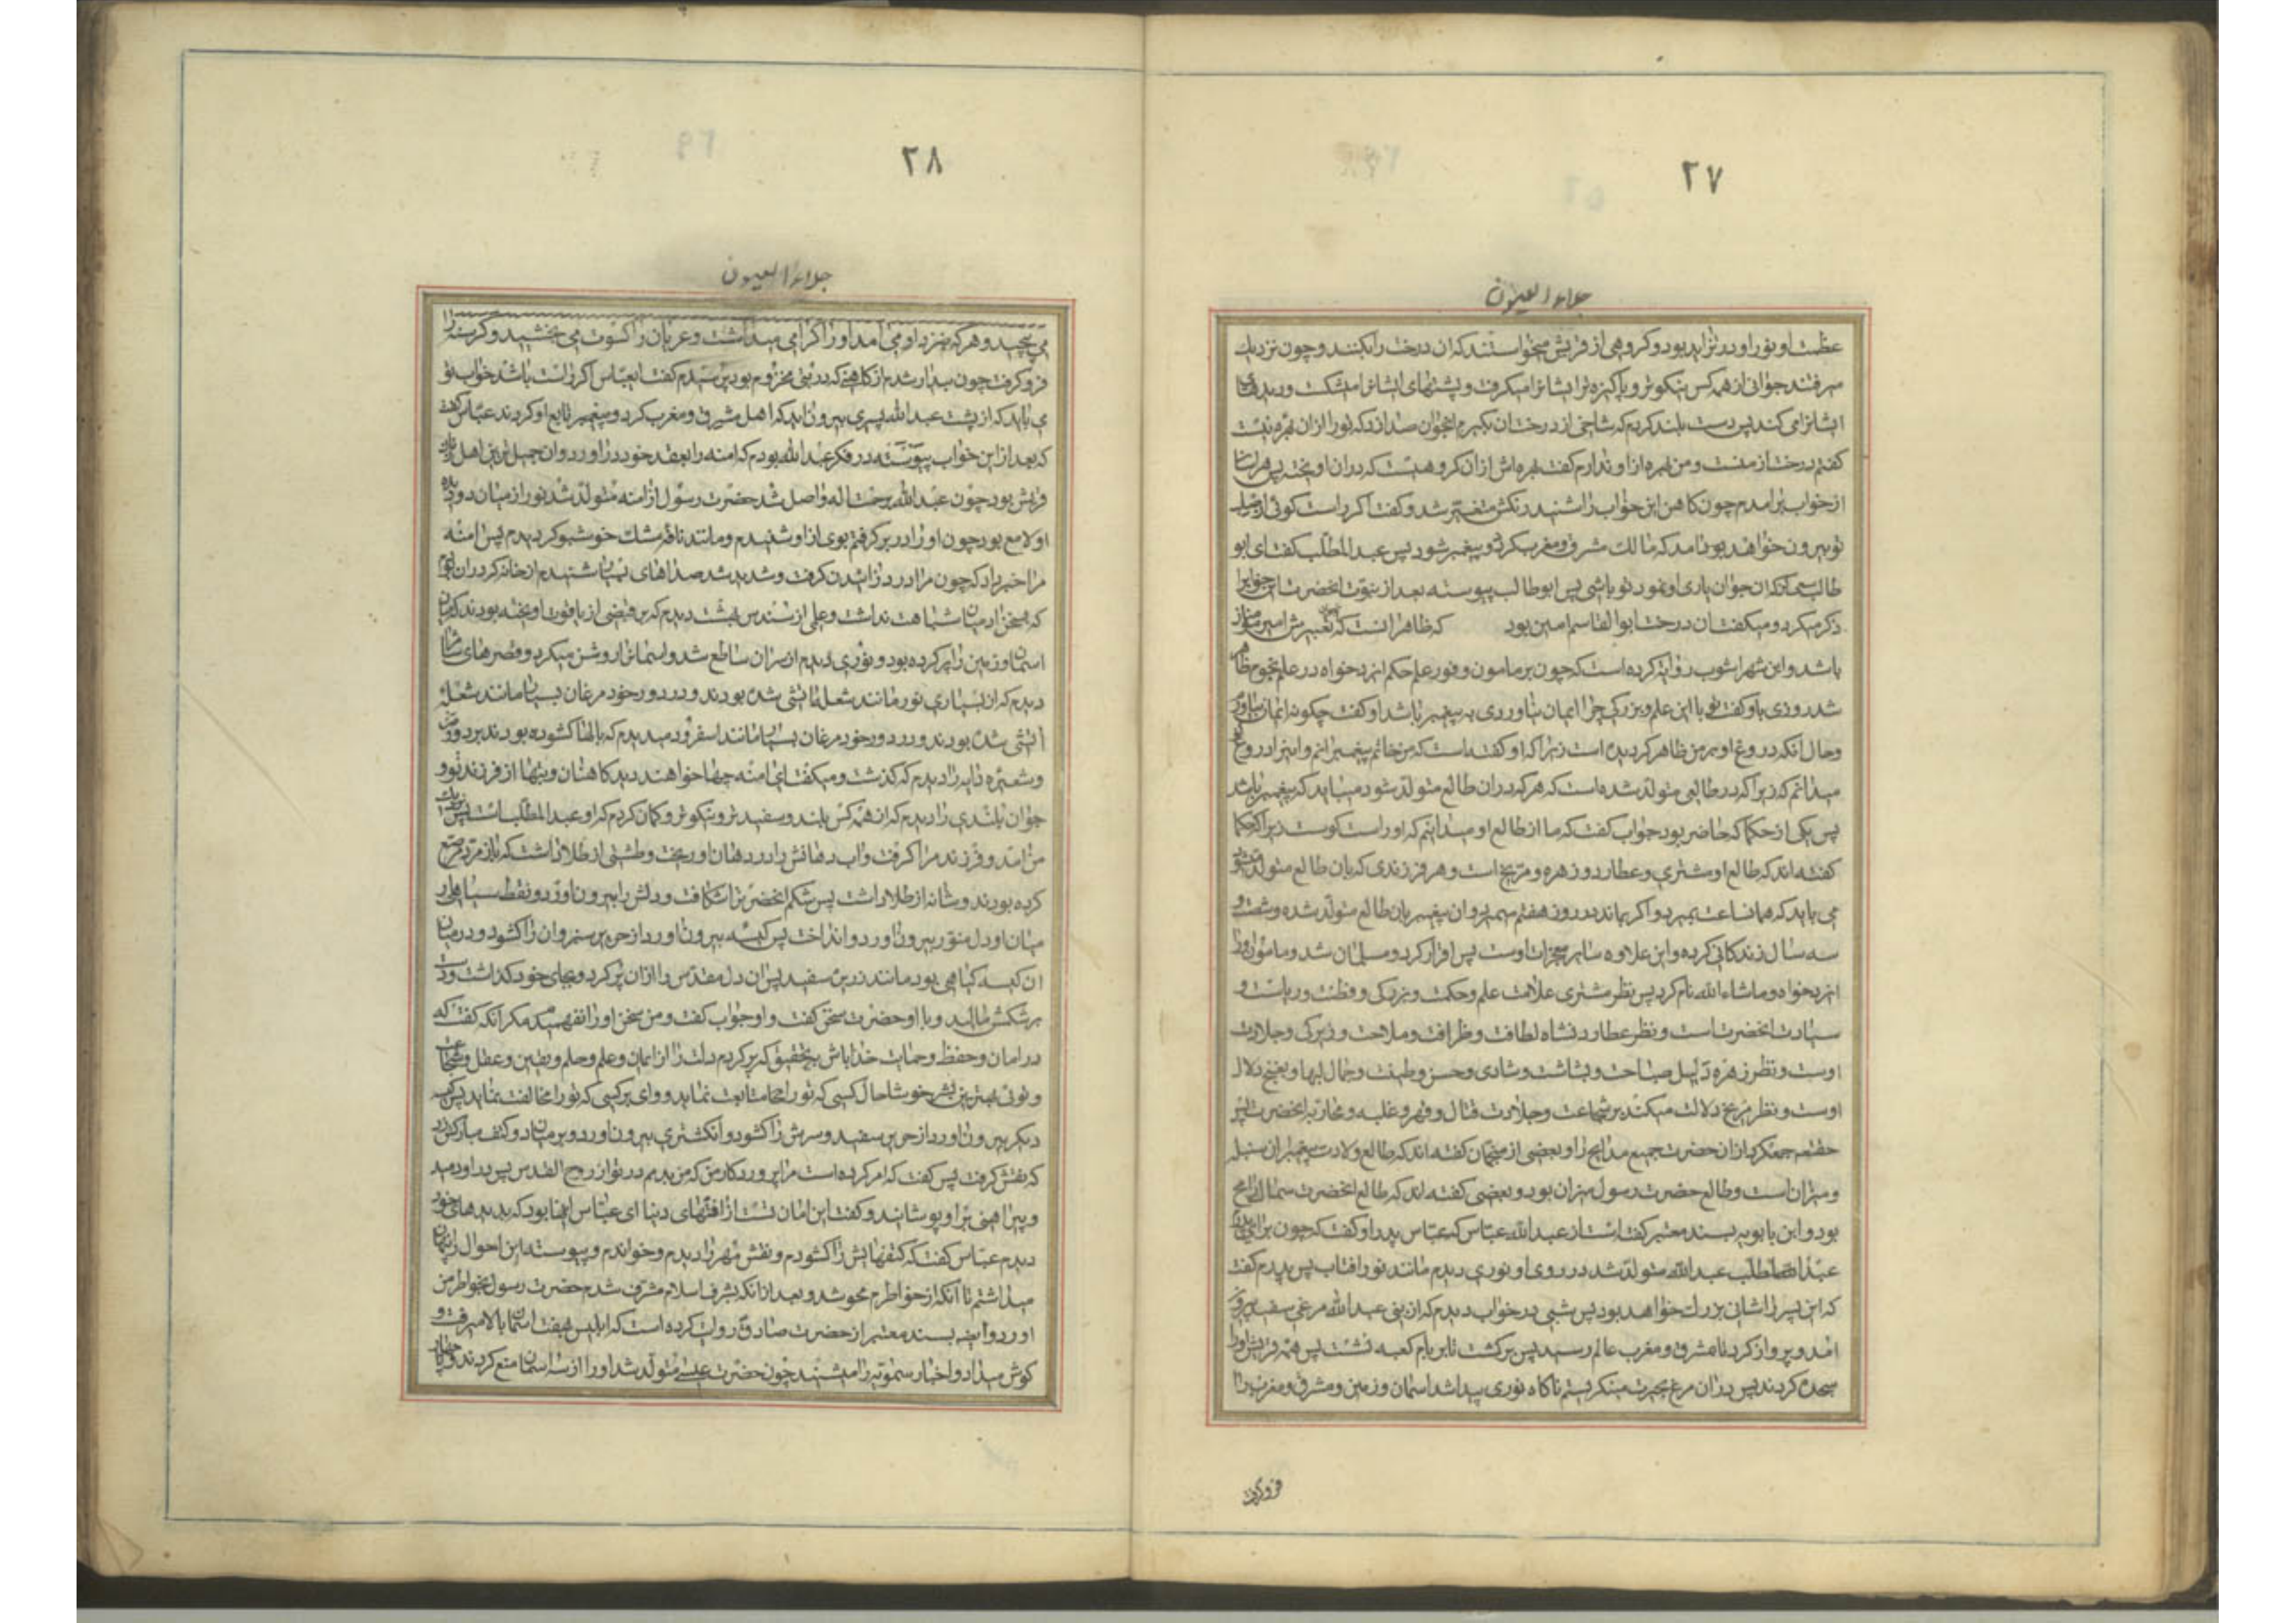 ۲۷
جلاء العیون
عظمت او نور او در تزاید بود و کروهی از قریش میخواستند که ان درخت را بکنند و چون نزدیك
میرفتند جوانی از همه کس نیکوتر و پاکیزه تر ایشانرا میکرفت و پشتهای ایشانرا میشکست و دیدهای
ایشانرا می کند پس دست بلند کردم که شاخی از درختان بکیرم انجوان صدا زد که تو را از ان بهره نیست
کفتم درخت از منست و من بهره از او ندارم کفت بهره اش از ان کروهیست که در ان اویخته پس هراسان
از خواب برامدم چون کاهن این خواب را شنید رنکش متغیر شد و کفت اکر راست کوئی از صلب
تو بیرون خواهد بود امد که مالك مشرق و مغرب کردد و پیغمبر شود پس عبد المطلب کفت ای ابو
طالب سعی کن که ان جوان یاری او نمود تو باشی پس ابو طالب پیوسته بعد از نبوت انحضرت این خواب را
ذکر میکرد و میکفت ان درخت ابو القاسم امین بود که ظاهر انست که تعبیرش امیر مؤمنان
باشد و ابن شهراشوب روایة کرده است که چون بر مامون وفور علم حکم ایزدخواه در علم نجوم ظاهر
شد روزی باو کفت تو با این علم و بزرکی چرا ایمان نیاوردی به پیغمبر ما شد او کفت چکونه ایمان بیاورم
و حال انکه دروغ او بر من ظاهر کردیده است زیرا که او کفته است که من خاتم پیغمبرانم و اینرا دروغ
میدانم که زیرا که در طالعی متولد شده است که هر که در ان طالع متولد شود میباید که پیغمبر باشد
پس یکی از حکما که حاضر بود جواب کفت که ما از طالع او میدانیم که او راست کوست زیرا که حکما
کفته اند که طالع او مشتری و عطارد و زهره و مریخ است و هر فرزندی که بان طالع متولد شود
می باید که همانساعت بمیرد و اکر بماند در روز هفتم بمیرد و ان پیغمبر بان طالع متولد شده و شصت و
سه سال زندکانی کرده و این علاوه سایر معجزات اوست پس اقرار کرد و مسلمان شد و مامون او را
ایزدخواه و ماشاء الله نام کرد پس نظر مشتری علامت علم و حکمت و بزرکی و فطنت و ریاست و
سیادت انحضرت است و نظر عطارد نشاه لطافت و ظرافت و ملاحت و زیرکی و حلاوت
اوست و نظر زهره دلیل صباحت و بشاشت و شادی و حسن و طینت و جمال و بها و غنج و دلال
اوست و نظر مریخ دلالت میکند بر شجاعت و جلادت قتال و قهر و غلبه و محاربه انحضرت پس
حقتعه جمع کرد از ان حضرت جمیع مدایح را و بعضی از منجمان کفته اند که طالع ولادت پیغمبران سنبله
و میزان است و طالع حضرت رسول میزان بود و بعضی کفته اند که طالع انحضرت سماك رامح
بود و ابن بابویه بسند معتبر کفته است از عبد الله عباس که عباس پدر او کفت که چون برای پدرم
عبد المطلب عبد الله متولد شد در روی او نوری دیدم مانند نور افتاب پس پدرم کفت
که این پسر را شانی بزرك خواهد بود پس شبی در خواب دیدم که از بینی عبد الله مرغی سفید بیرون
امد و پرواز کرد تا مشرق و مغرب عالم رسید پس برکشت تا بر بام کعبه نشست پس همه قریش او را
سجده کردند پس در ان مرغ بحیرت مینکریستم ناکاه نوری پیدا شد اسمان و زمین و مشرق و مغرب را
فروکرفت
۲۸
جلاء العیون
می پیچید و هر که بنزد او می آمد او را کرامی میداشت و عریان را کسوت می بخشید و کرسنه را
فروکرفت چون بیدار شدم از کاهنی که در بنی مخزوم بود پرسیدم کفت ایعباس اکر راست باشد خواب تو
می باید که از پشت عبد الله پسری بیرون اید که اهل مشرق و مغرب کرد و پیغمبر تابع او کردند عباس کفت
که بعد از این خواب پیوسته در فکر عبد الله بودم که امنه را بعقد خود دراورد و ان جمیل ترین اهل زنان
قریش بود چون عبد الله برحمت اله واصل شد حضرت رسول از امنه متولد شد نور از میان دو دیده
او لامع بود چون او را دربر کرفتم بوی از او شنیدم و مانند نافه مشك خوشبو کردیدم پس امنه
مرا خبر داد که چون مرا درد زائیدن کرفت و شدید شد صداهای بسیار شنیدم از خانه که در ان بودم
که بسخن ادمیان شباهت نداشت و علمی از سندس بهشت دیدم که بر قضیبی از یاقوت اویخته بودند که میان
اسمان و زمین را پر کرده بود و نوری دیدم از سر ان ساطع شد و اسمانرا روشن میکرد و قصرهای شام را
دیدم که از بسیاری نور مانند شعله اتشی شده بودند و در دور خود مرغان بسیار مانند شعله
اتشی شده بودند و در دور خود مرغان بسیار مانند اسفرود میدیدم که بالها کشوده بودند بر دور من
و شعیره دایه را دیدم که کذشت و میکفت ای امنه چها خواهند دید کاهنان و بتها از فرزند تو و
جوان بلندی را دیدم که از همه کس بلند و سفیدتر و نیکوتر و کمان کردم که او عبد المطلب است پس نزدیك
من آمد و فرزند مرا کرفت و آب دهانش را در دهان او ریخت و طشتی از طلا داشت که بزمرد مرصع
کرده بودند و شانه از طلا داشت پس شکم انحضرت را شکافت و دلش را بیرون اورد و نقطه سیاهی از
میان او دل منور بیرون اورد و انداخت پس کیسه بیرون اورد از حریر سبز و ان را کشود و در میان
ان کیسه کیاهی بود مانند زرین سفید پس ان دل مقدس را از ان پر کرد و بجای خود کذاشت و دست
بر شکمش مالید و با او حضرت سخن کفت و او جواب کفت و من سخن او را نفهمیدم مکر انکه کفت که
در امان و حفظ و حمایت خدا باش بتحقیق که پر کردم دلت را از ایمان و علم و حلم و یقین و عقل و شجاعت
و توئی بهترین بشر خوشا حال کسی که تو را متابعت نماید و وای بر کسی که تو را مخالفت نماید پس کیسه
دیکر بیرون اورد از حریر سفید و سرش را کشود و انکشتری بیرون اورد و بر میان دو کتف مبارکش زد
که نقش کرفت پس کفت که امر کرده است مرا پروردکار من که من بدمم در تو از روح القدس پس در او دمید
و پیراهنی بر او پوشانید و کفت این امان تست از افتهای دنیا ای عباس اینها بود که بدیدهای خود
دیدم عباس کفت که کتفهایش را کشودم و نقش مهر را دیدم و خواندم و پیوسته این احوال را پنهان
میداشتم تا آنکه از خواطرم محو شد و بعد از انکه بشرف اسلام مشرف شدم حضرت رسول بخواطر من
اورد و ایضا بسند معتبر از حضرت صادق روایت کرده است که ابلیس بهفت اسمان بالا میرفت و
کوش میداد و اخبار سماویه را میشنید چون حضرت عیسی متولد شد او را از سه اسمان منع کردند و تا چهار